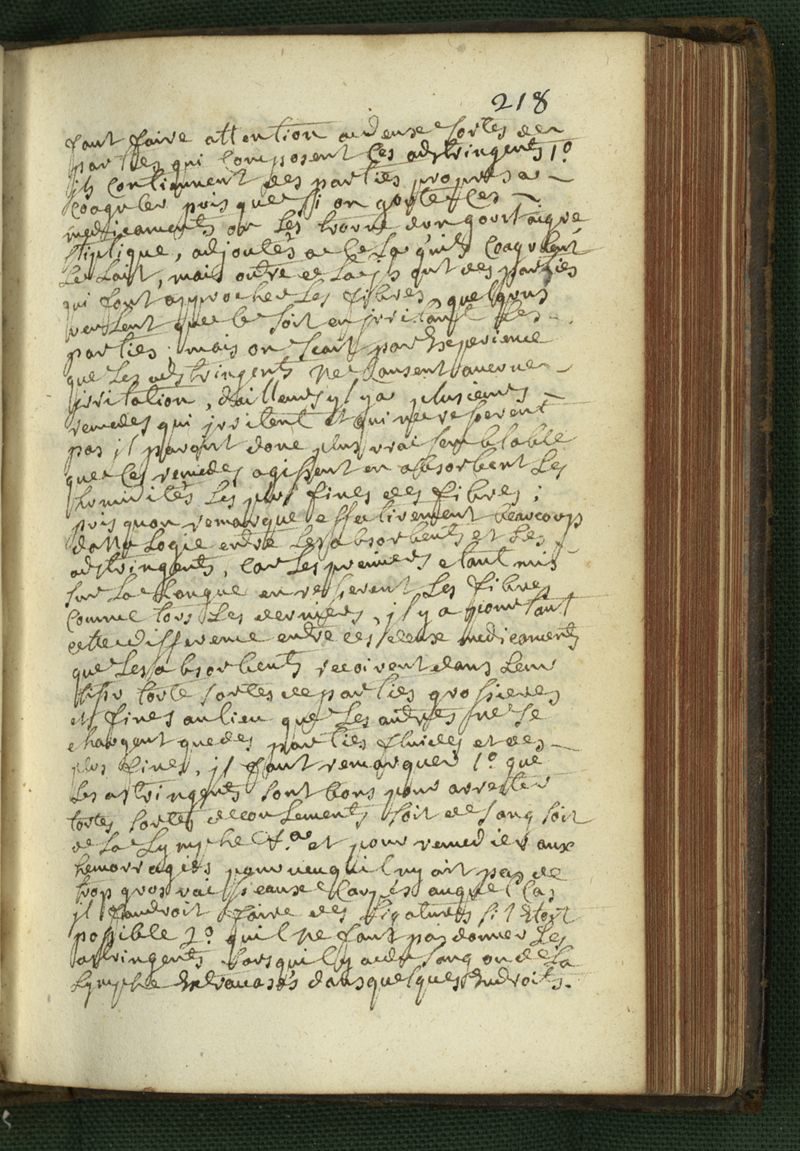 218
faut faire attention a deux sortes de
parties qui composent les adstringents 1º
ils contiennent des parties propres a
coaguler puis que si on goute les
medicaments on les trouve d'un goout aigre
stiptique, adjoutés a cela quils coagulent
le lait, mais outre cela ils ont des parties
qui font approcher les fibres, quelquns
veulent que ce soit en jrritant les
parties, mais on scait par Experience
que les adstringents ne causent aucune
jrritation, dailleurs jl y a plusieurs
remedes qui jrritent et qui ne reserrent
pas jl paroit donc plus vraisemblable
que ces remedes agissent en absorbent les
humidités les plus fines des fibres ;
puis quon remarque effectivement beaucoup
danalogie entre les absorbents et les
adstringents, car les premiers etant mis
sur la langue en reserrent les fibres
comme tous les derniers, jl y a pourtant
cette difference entre ces deux medicaments
que les absorbents recoivent dans leur
tissu toute sortes de parties grossieres
et fines au lieu que les autres ne se
chargent que des parties fluides et des
plus fines, jl faut remarquer 1º que
les astringents sont bons pour arreter
toutes sortes decoulements soit de sang soit
de la lymphe &.ª et pour remedier aux
hemorragies pourveu quil ny ait pas de
trop gros vaisseaux car auquel cas
jl faudroit faire des ligatures sil Etoit
possible 2º quil ne faut pas donner les
astringents lorsquil y a du sang ou de la
lymphe Extravasés dans quelques Endroits.